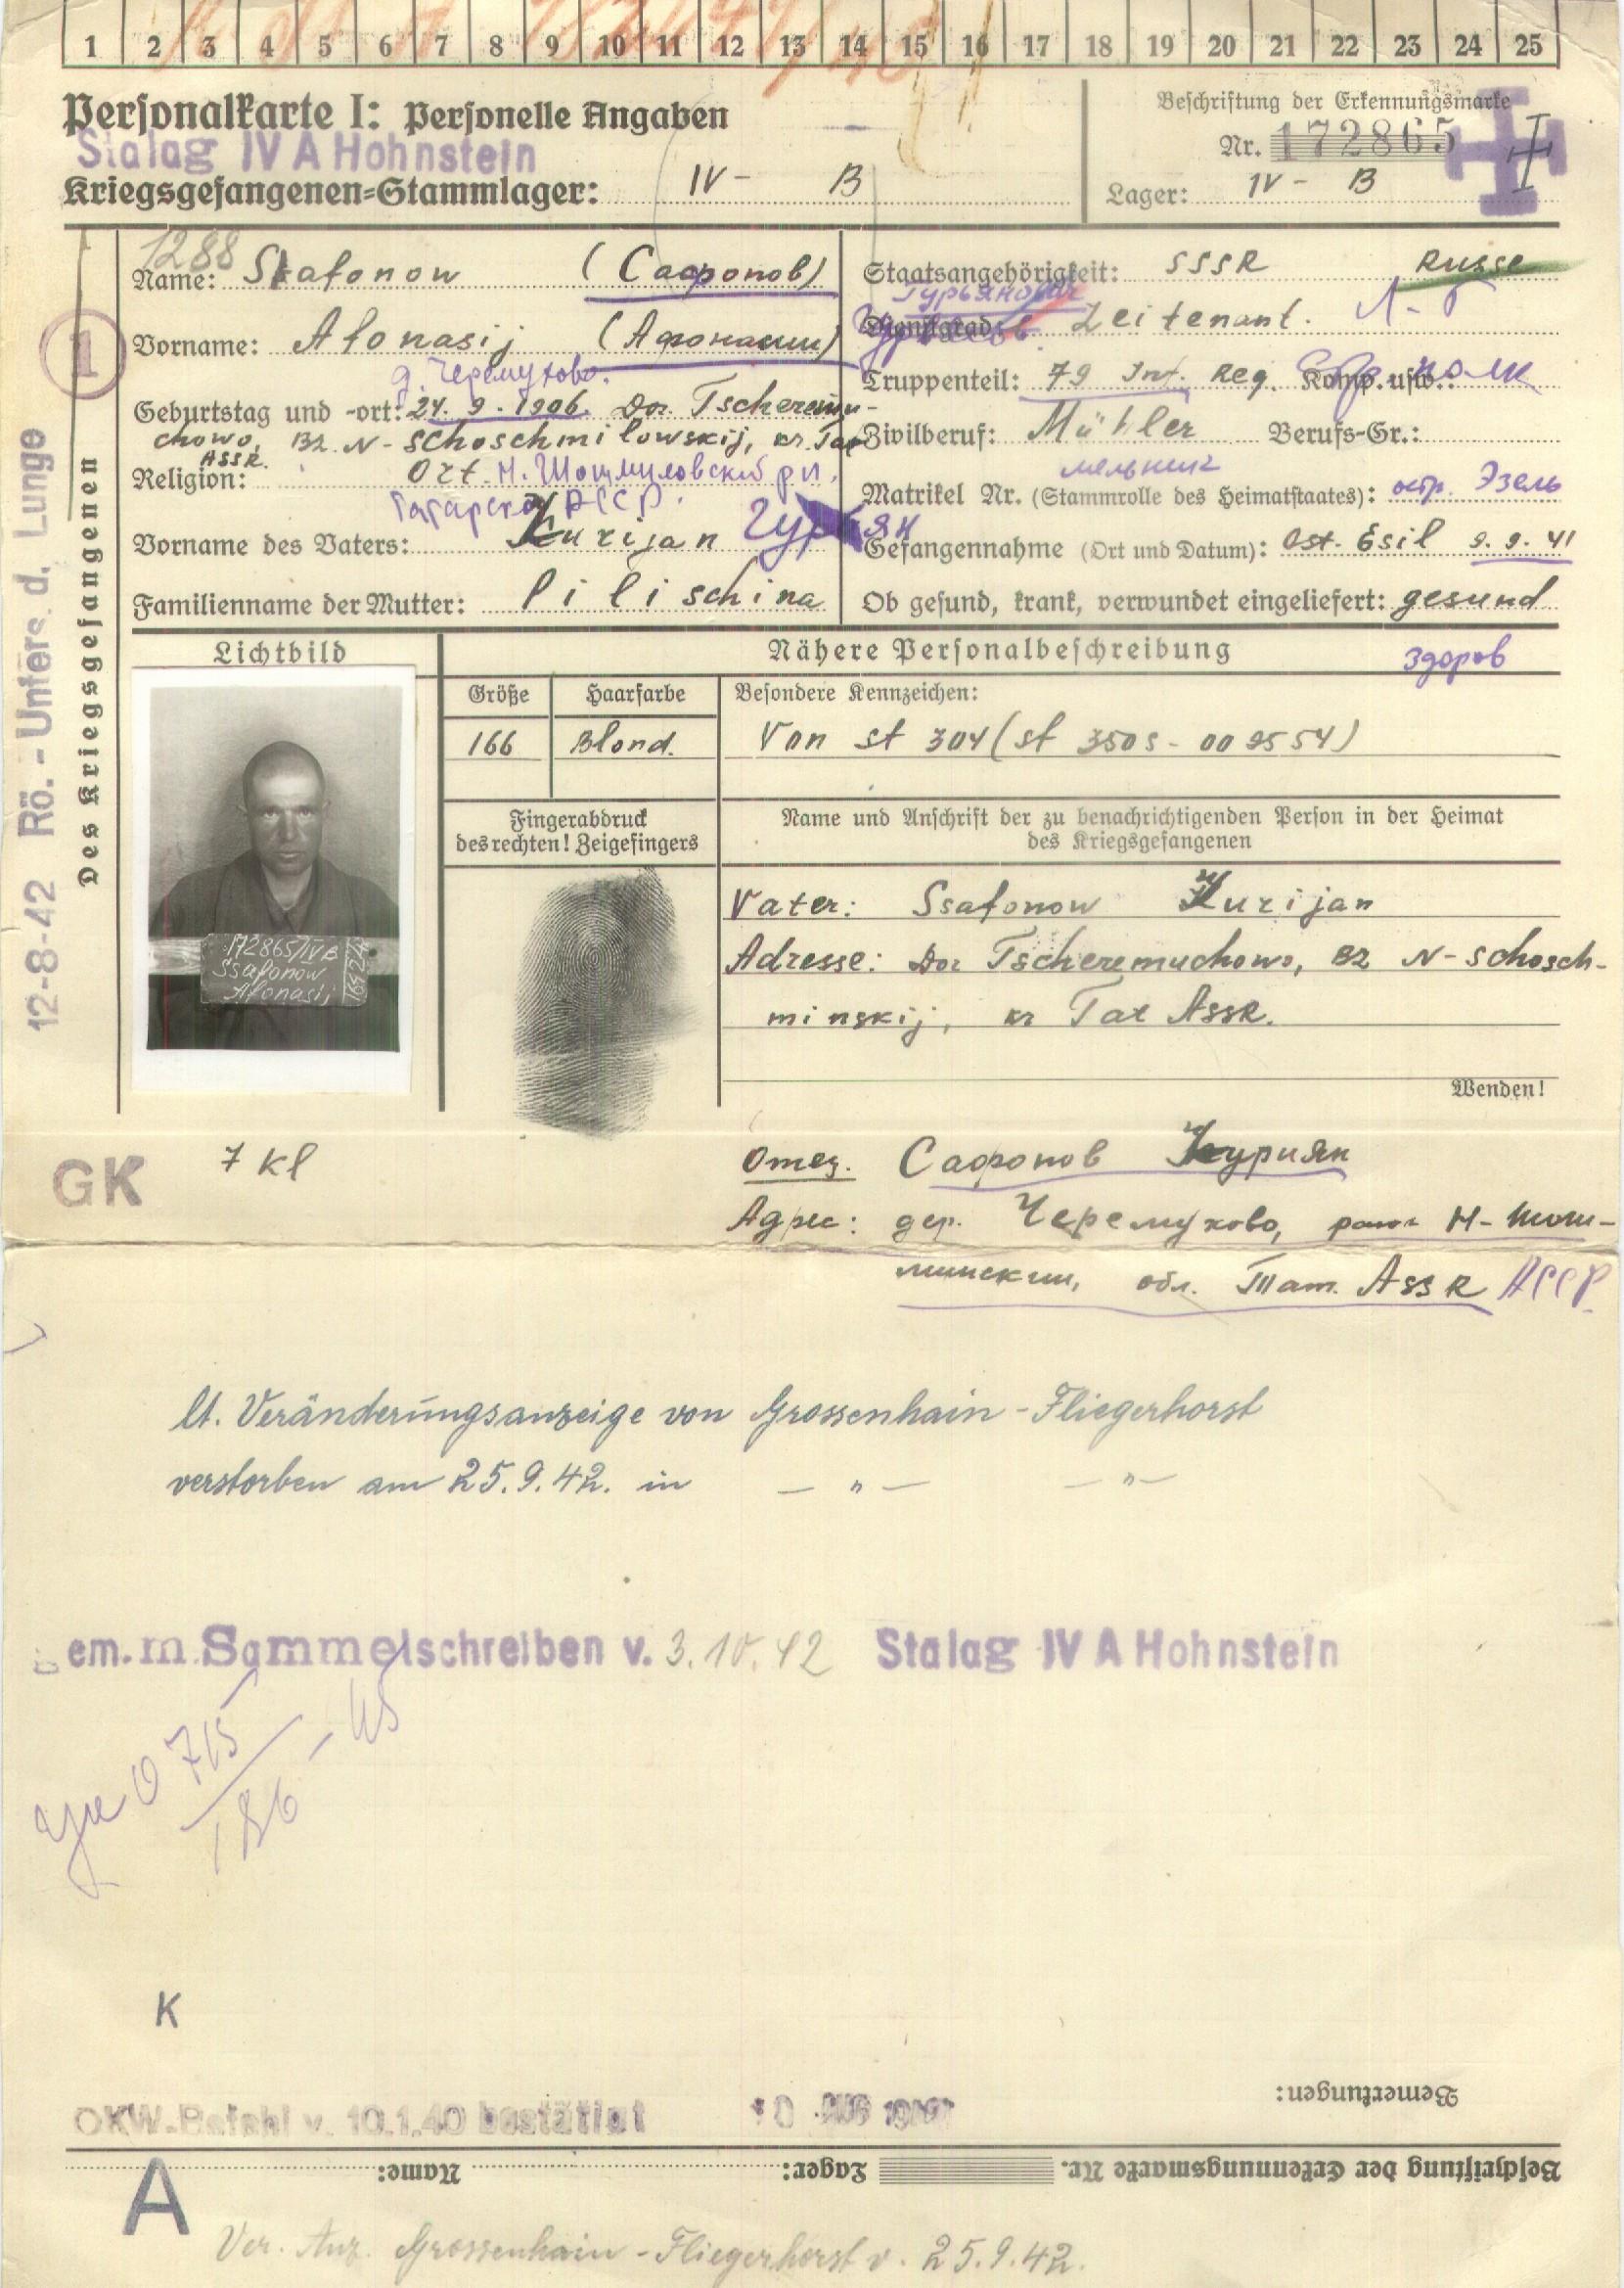 1 2 3 4 5 6 7 8 9 10 11 12 13 14 15 16 17 18 19 20 21 22 23 24 25
Personalkarte I: Personelle Angaben
Stalag IV A Hohnstein
Kriegsgefangenen-Stammlager: IV - B
Beschriftung der Erkennungsmarke
Nr. 172865
Lager: IV - B
Des Kriegsgefangenen
12-8-42 Rö.-Unters. d. Lunge
1
1288
Name: Ssafonow (Сафонов)
Vorname: Afonasij (Афонасии)
д. Черемухово.
Geburtstag und -ort: 24. 9. 1906. Dor Tscheremu-
chowo, Bz. N-Schoschmilowskij, kr. Tat
ASSR.
Religion: Ort. Н. Шошмиловский рн.
Татарская АССР.
Vorname des Vaters: Kurijan Гурьян
Familienname der Mutter: Pilischina
Staatsangehörigkeit: SSSR Russe
Гурьянович
Dienstgrad: Leitenant. Л-т
Truppenteil: 79 Inf. Reg. Komp. usw.: полк
Zivilberuf: Mühler Berufs-Gr.:
мельник
Matrikel Nr. (Stammrolle des Heimatstaates): остр. Эзель
Gefangennahme (Ort und Datum): Ost. Esil 9. 9. 41
Ob gesund, krank, verwundet eingeliefert: gesund
здоров
Lichtbild
Nähere Personalbeschreibung
Größe Haarfarbe Besondere Kennzeichen:
166 Blond. Von st 304 (st 350 S - 009554)
172865/IVB
Ssafonow
Afonasij
Fingerabdruck
des rechten! Zeigefingers
Name und Anschrift der zu benachrichtigenden Person in der Heimat
des Kriegsgefangenen
Vater: Ssafonow Kurijan
Adresse: Dor Tscheremuchowo, Bz N-Schosch-
minskij, kr Tat ASSR.
Wenden!
GK 7 Kl
Отец. Сафонов Куриян
Адрес: дер. Черемухово, район Н-Шош-
минский, обл. Тат. ASSR АССР.
lt. Veränderungsanzeige von Grossenhain-Fliegerhorst
verstorben am 25.9.42. in — " — — " —
gem. m. Sammelschreiben v. 3.10.42 Stalag IV A Hohnstein
0715
186 - 45
K
Bemerkungen:
OKW-Befehl v. 10.1.40 bestätigt 10 AUG 1942
Beschriftung der Erkennungsmarke Nr. Lager: Name:
A
Ver. Anz. Grossenhain-Fliegerhorst v. 25.9.42.